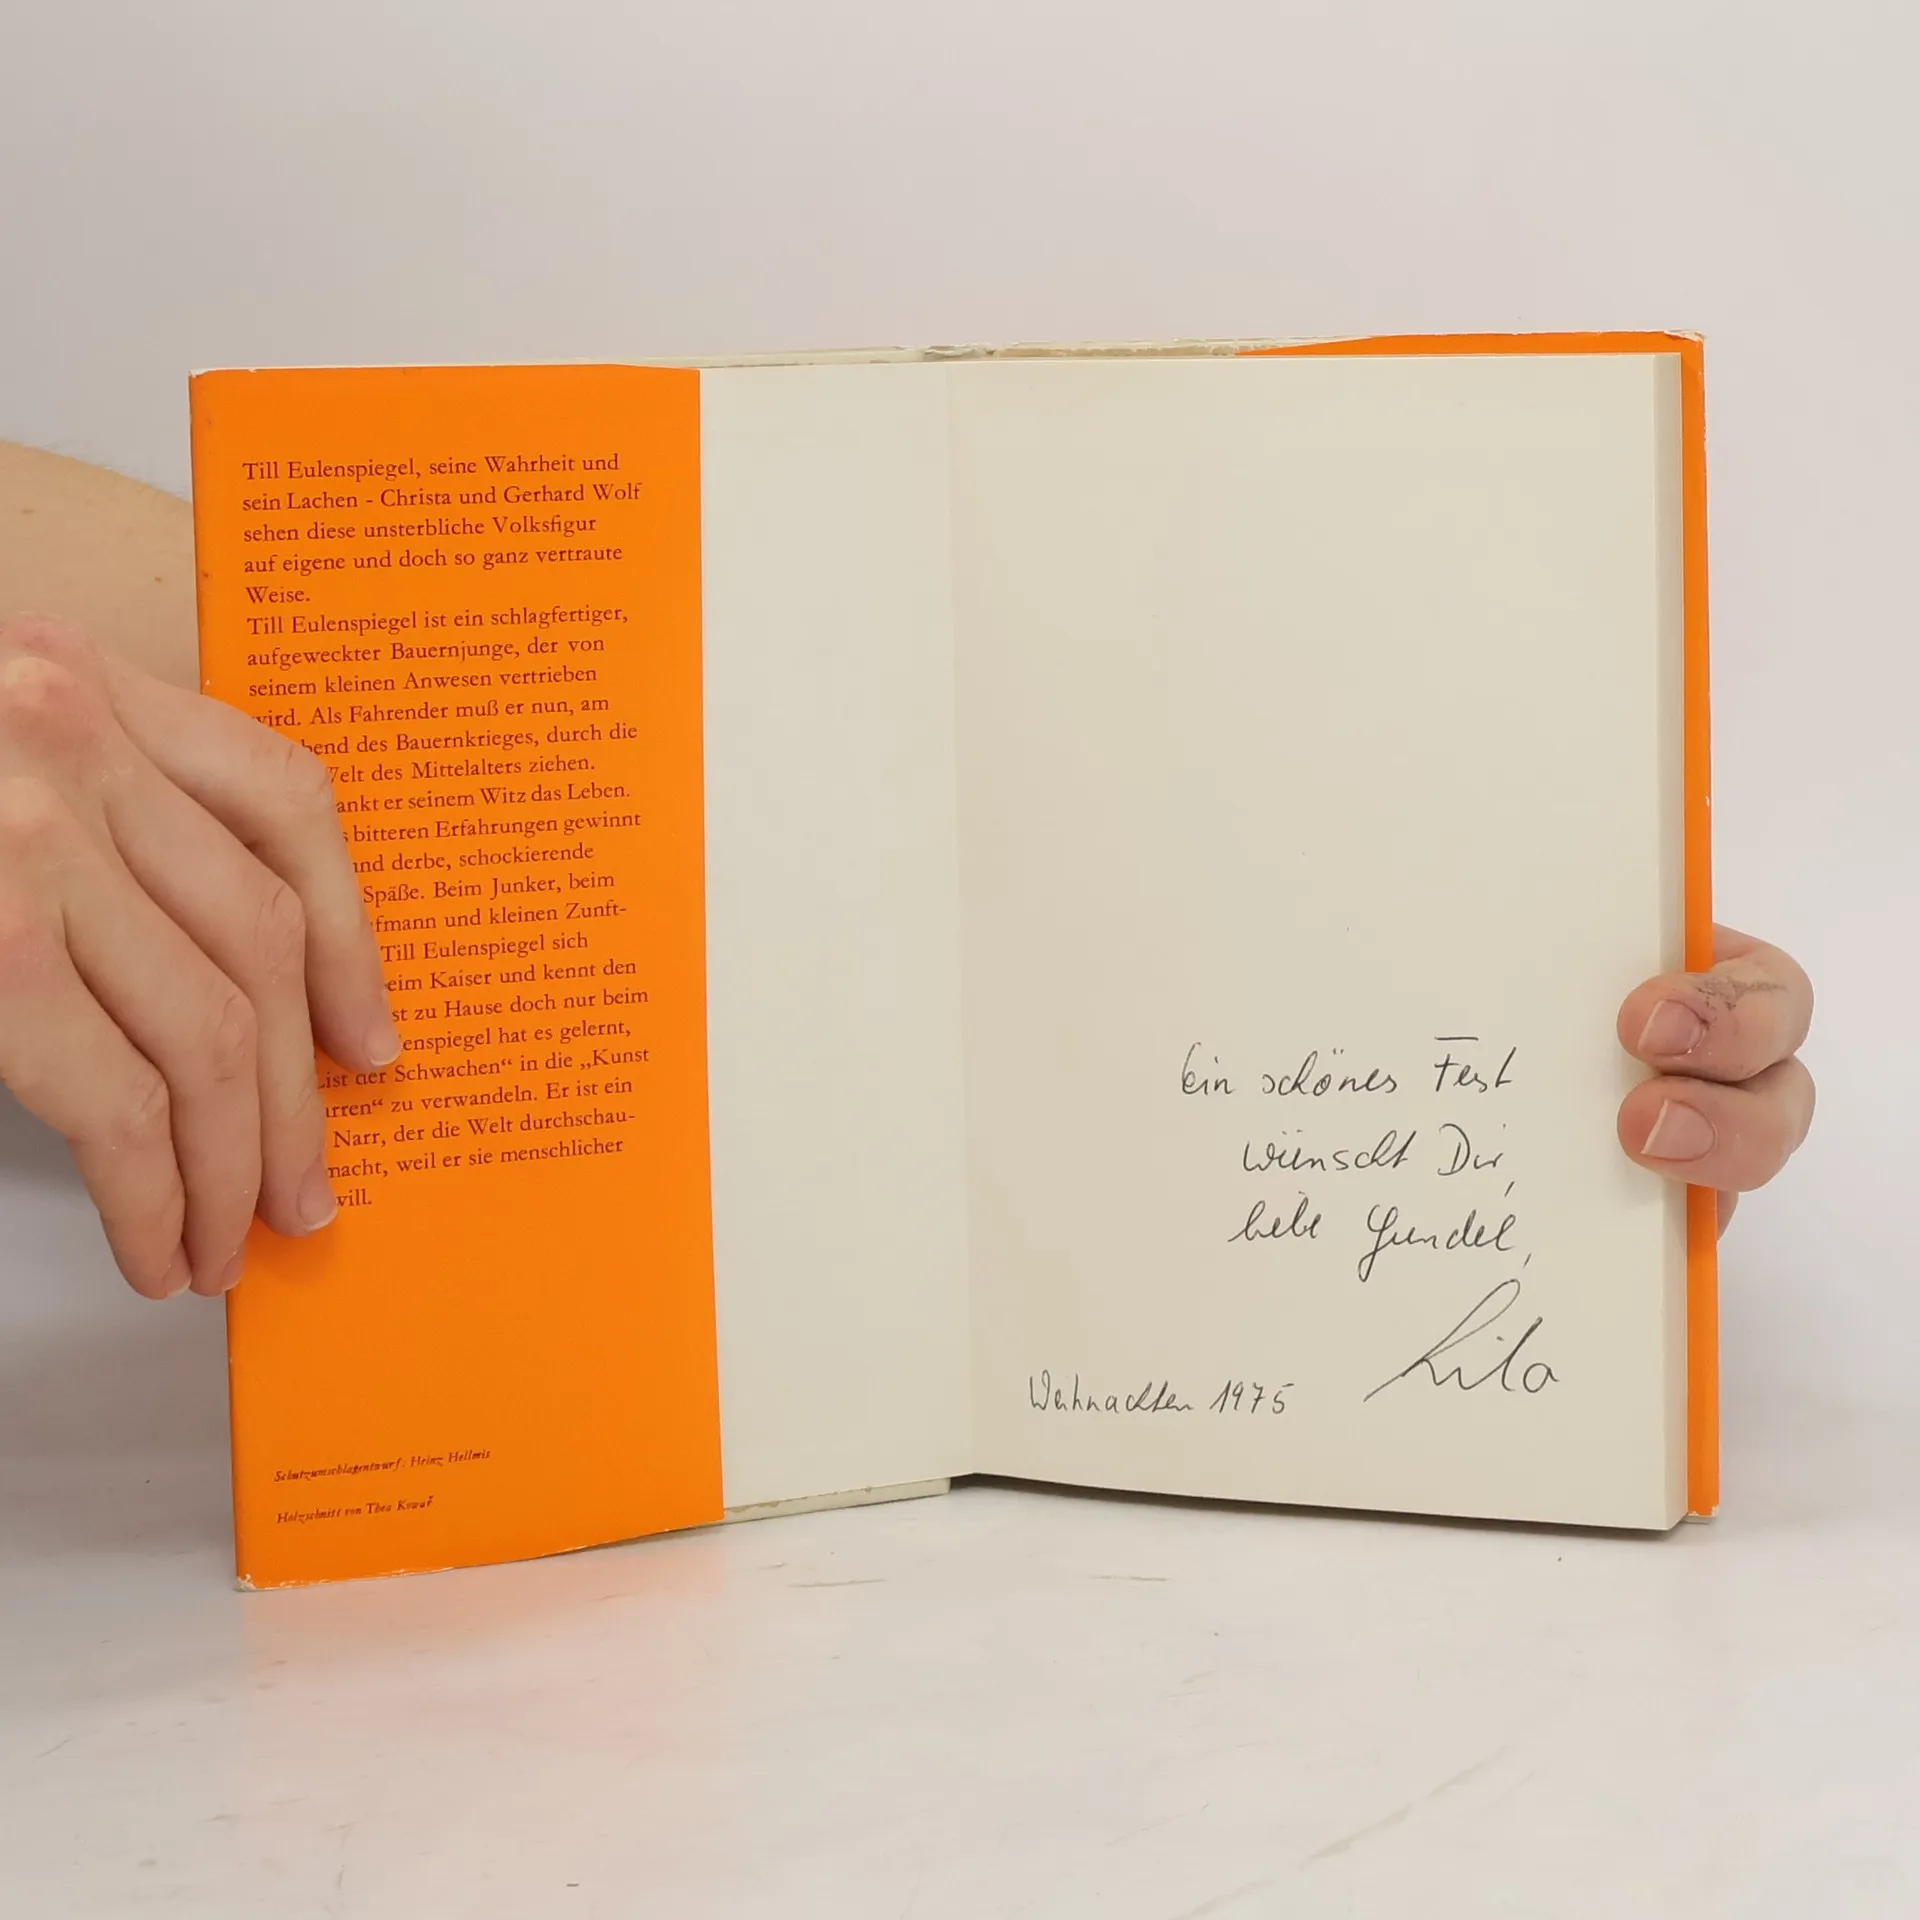 Till Eulenspiegel, seine Wahrheit und
sein Lachen - Christa und Gerhard Wolf
sehen diese unsterbliche Volksfigur
auf eigene und doch so ganz vertraute
Weise.
Till Eulenspiegel ist ein schlagfertiger,
aufgeweckter Bauernjunge, der von
seinem kleinen Anwesen vertrieben
wird. Als Fahrender muß er nun, am
bend des Bauernkrieges, durch die
Welt des Mittelalters ziehen.
ankt er seinem Witz das Leben.
s bitteren Erfahrungen gewinnt
und derbe, schockierende
Späße. Beim Junker, beim
fmann und kleinen Zunft-
Till Eulenspiegel sich
eim Kaiser und kennt den
st zu Hause doch nur beim
enspiegel hat es gelernt,
List der Schwachen“ in die „Kunst
arren“ zu verwandeln. Er ist ein
Narr, der die Welt durchschau-
macht, weil er sie menschlicher
will.
Schutzumschlagentwurf: Heinz Hellmis
Holzschnitt von Thea Kowař
Ein schönes Fest
wünscht Dir,
liebe Gundel,
Lila
Weihnachten 1975